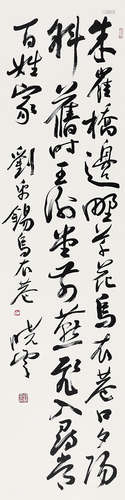 朱雀橋邊野草花烏衣巷口夕陽
斜舊時王謝堂前燕飛入尋常
百姓家 劉禹錫烏衣巷